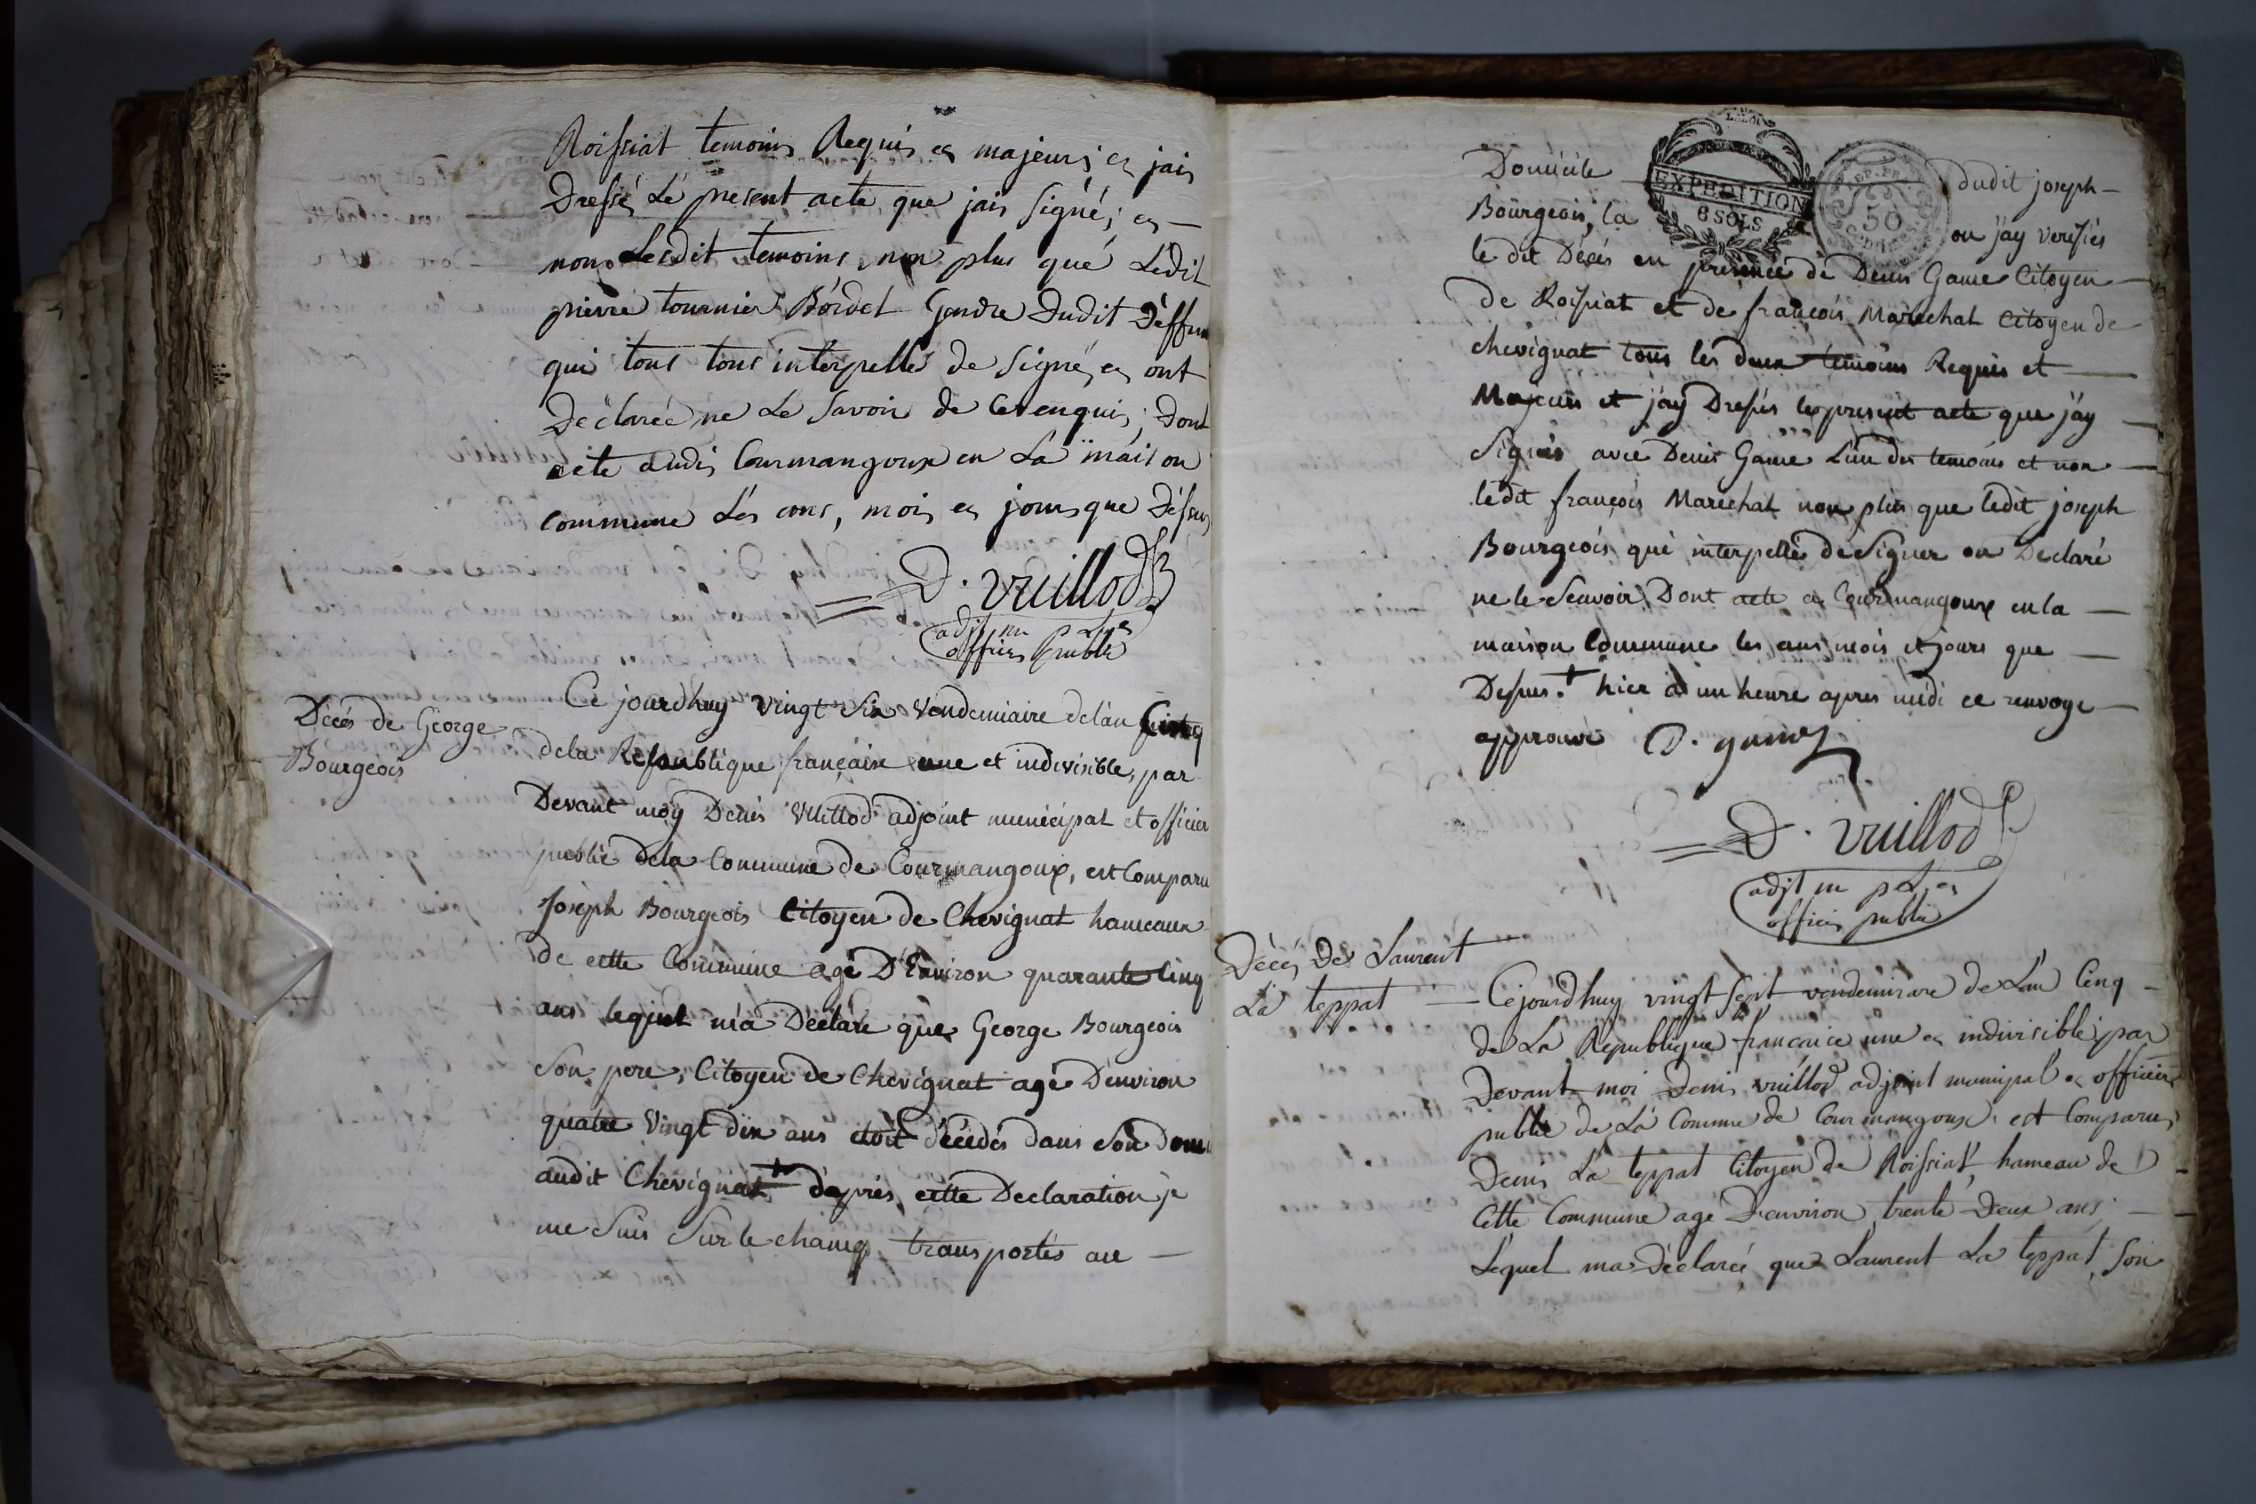 Roissiat temoins Requis et majeurs et jais
Dressé Lé present acte que jais signé, et
non Lesdit temoins non plus qué Ledit
pierre tournier Bordet Gendre Dudit Deffun
qui tous tous interpellé de signé et ont
Déclarée ne Le savoir de ce enquis, Dont
acte audit Courmangoux en La maison
commune Lés ans, mois et jours que Déssus
D. vuillod
adjt m pal et
officier public
Décés de George
Bourgeois
Ce jourdhuy vingt six Vendemiaire de lan Cinq
dela Republique française une et indivisible, par
Devant moy Denis Vuillod adjoint municipal et officier
public dela Commune de Courmangoux, est Comparu
Joseph Bourgeois Citoyen de Chevignat hameaux
de cette Commune agé D'Environ quarante Cinq
ans lequel m'a Déclaré que George Bourgeois
son pere, Citoyen de Chevignat agé D'environ
quatre Vingt dix ans etoit décedés dans son Domi
audit Chevignat + daprés cette Declaration je
me suis sur le champ transportés au
Domicile dudit joseph
EXPEDITION
6 SOLS
REP. FRA
50
Bourgeois, la ou j'ay verifiés
le dit Décés en presence de Denis Game Citoyen
de Roissiat et de francois Marechal Citoyen de
chevignat tous les deux temoins Requis et
Majeurs et j'ay Dressés le present acte que j'ay
signés avec Denis Game L'un des temoins et non
ledit françois Marechal non plus que ledit joseph
Bourgeois qui interpellés de signer on Declaré
ne le Scavoir, Dont acte a Courmangoux en la
maison Commune les ans mois et jours que
Dessus. + hier a un heure apres midi ce renvoye
approuvé D. game
D. vuillod
adjt m pal et
officier public
Décés De Laurent
La teppat
Cejourdhuy vingt sept vendemiaire de L'an Cinq
de La Republique francaice une et indivisible par
Devant moi Denis vuillod adjoint munipal et officier
public de La Commune de Courmangoux est Comparu
Denis La teppat Citoyen de Roissiat hameau de
Cette Commune agé Denviron trente Deux ans
Lequel ma Déclaré que Laurent La teppat son